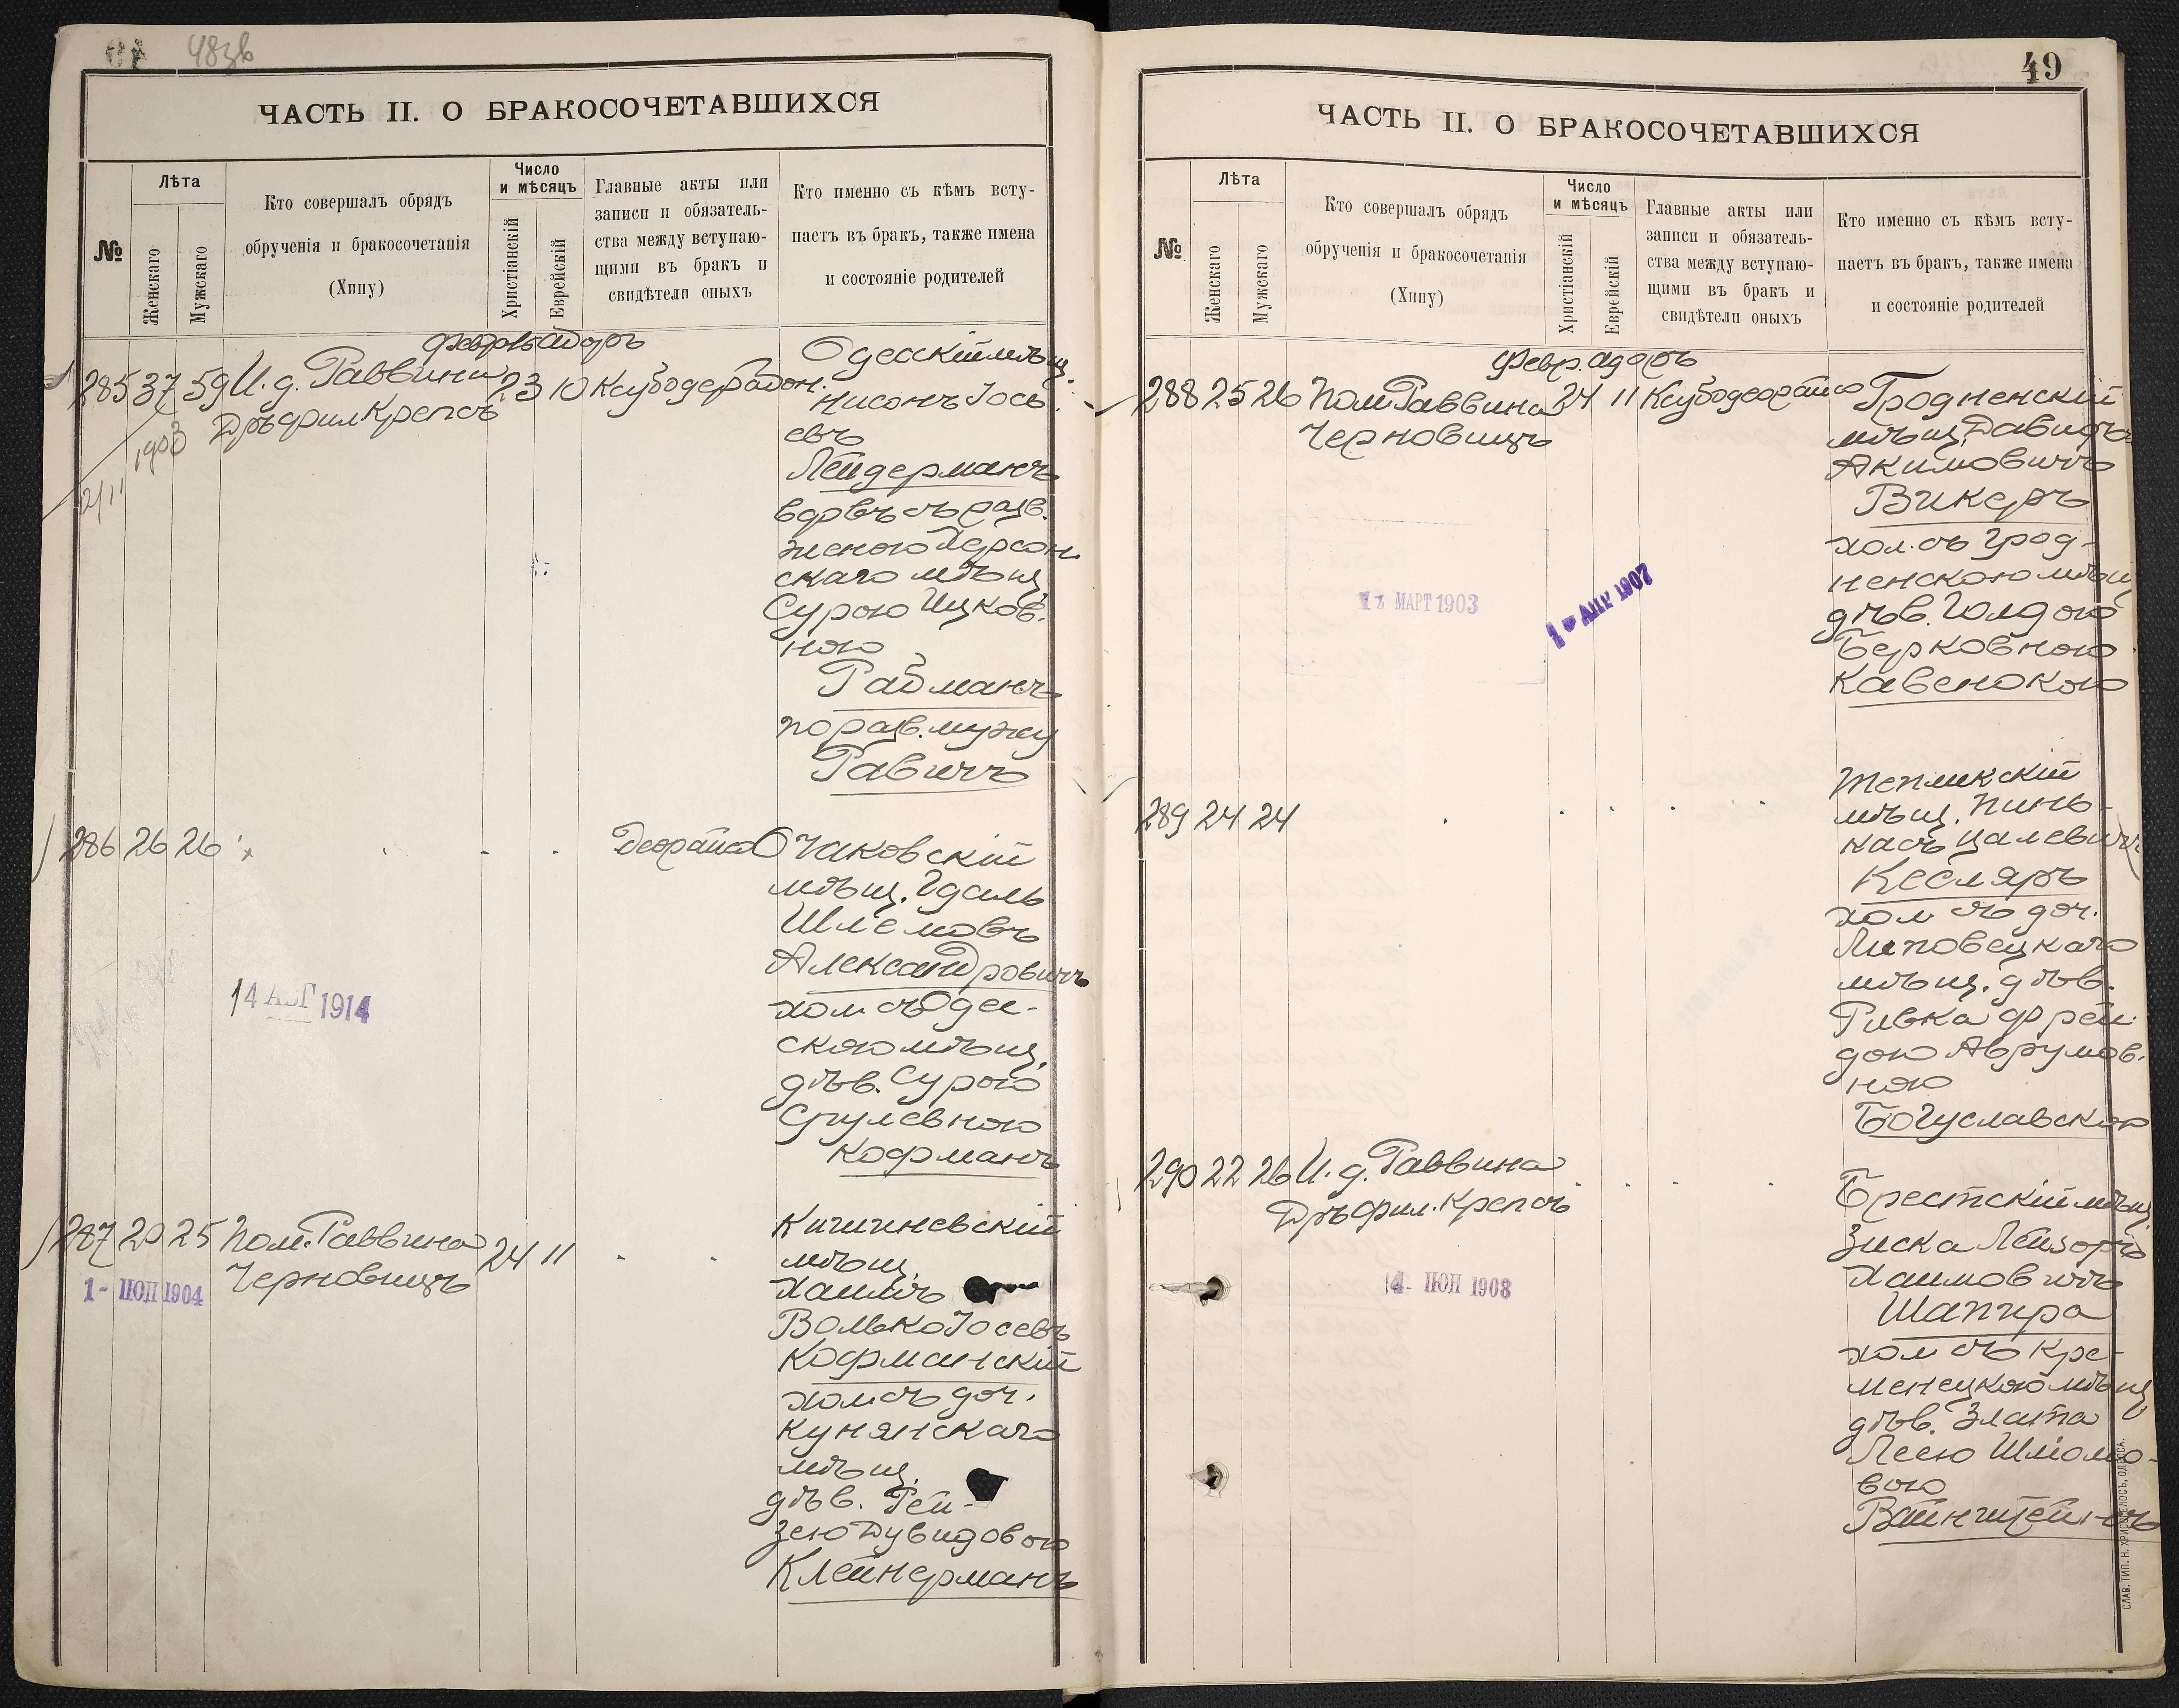 48зв
ЧАСТЬ II. О БРАКОСОЧЕТАВШИХСЯ
№
Лѣта
Женскаго
Мужскаго
Кто совершалъ обрядъ
обрученія и бракосочетанія
(Хипу)
Число
и мѣсяцъ
Христіанскій
Еврейскій
Главные акты или
записи и обязатель-
ства между вступаю-
щими въ бракъ и
свидѣтели оныхъ
Кто именно съ кѣмъ всту-
паетъ въ бракъ, также имена
и состояніе родителей
февр. Адоръ
285 37 59 И. д. Раввина 23 10
Д-ръ фил. Крепсъ
1903
Одесскій мѣщ.
Нисонъ Іось
евъ
Лейдерманъ
вдовъ съ разв.
женою Херсон
скаго мѣщ.
Сурою Ицков.
ною
Райманъ
по разв. мужу
Равичъ
286 26 26
Очаковскій
мѣщ. Гдаль
Шлемовъ
Александровичъ
хол. съ Одес-
скою мѣщ.
дѣв. Сурою
Срулевною
Кофманъ
14 АВГ 1914
287 20 25 Пом. Раввина 24 11
Черновицъ
1- ІЮЛ 1904
Кишиневскій
мѣщ.
Хаимъ
Волько Іосевъ
Кофманскій
хол. съ доч.
Кунянскаго
мѣщ.
дѣв. Рей-
зею Дувидовою
Клейнерманъ
49
ЧАСТЬ II. О БРАКОСОЧЕТАВШИХСЯ
№
Лѣта
Женскаго
Мужскаго
Кто совершалъ обрядъ
обрученія и бракосочетанія
(Хипу)
Число
и мѣсяцъ
Христіанскій
Еврейскій
Главные акты или
записи и обязатель-
ства между вступаю-
щими въ бракъ и
свидѣтели оныхъ
Кто именно съ кѣмъ всту-
паетъ въ бракъ, также имена
и состояніе родителей
февр. Адоръ
288 25 26 Пом. Раввина 24 11
Черновицъ
Гродненскій
мѣщ. Давидъ
Акимовичъ
Викеръ
хол. съ Грод-
ненскою мѣщ
дѣв. Голдою
Берковною
Кавенокою
МАРТ 1903
1- АПР 1907
289 24 24
Тепликскій
мѣщ. Пинь-
касъ Цалевичъ
Кесляръ
хол съ доч.
Липовецкаго
мѣщ. дѣв.
Ривка Фрей-
дою Аврумов.
ною
Богуславскою
290 22 26 И. д. Раввина
Д-ръ фил. Крепсъ
4- ІЮЛ 1908
Брестскій мѣщ
Зиска Лейзоръ
Хаимовичъ
Шапира
хол съ Кре-
менецкою мѣщ
дѣв. Злата
Леею Шліомо-
вою
Вайнштейнъ
СЛАВ. ТИП. Н. ХРИСОГЕЛОСЪ, ОДЕССА.